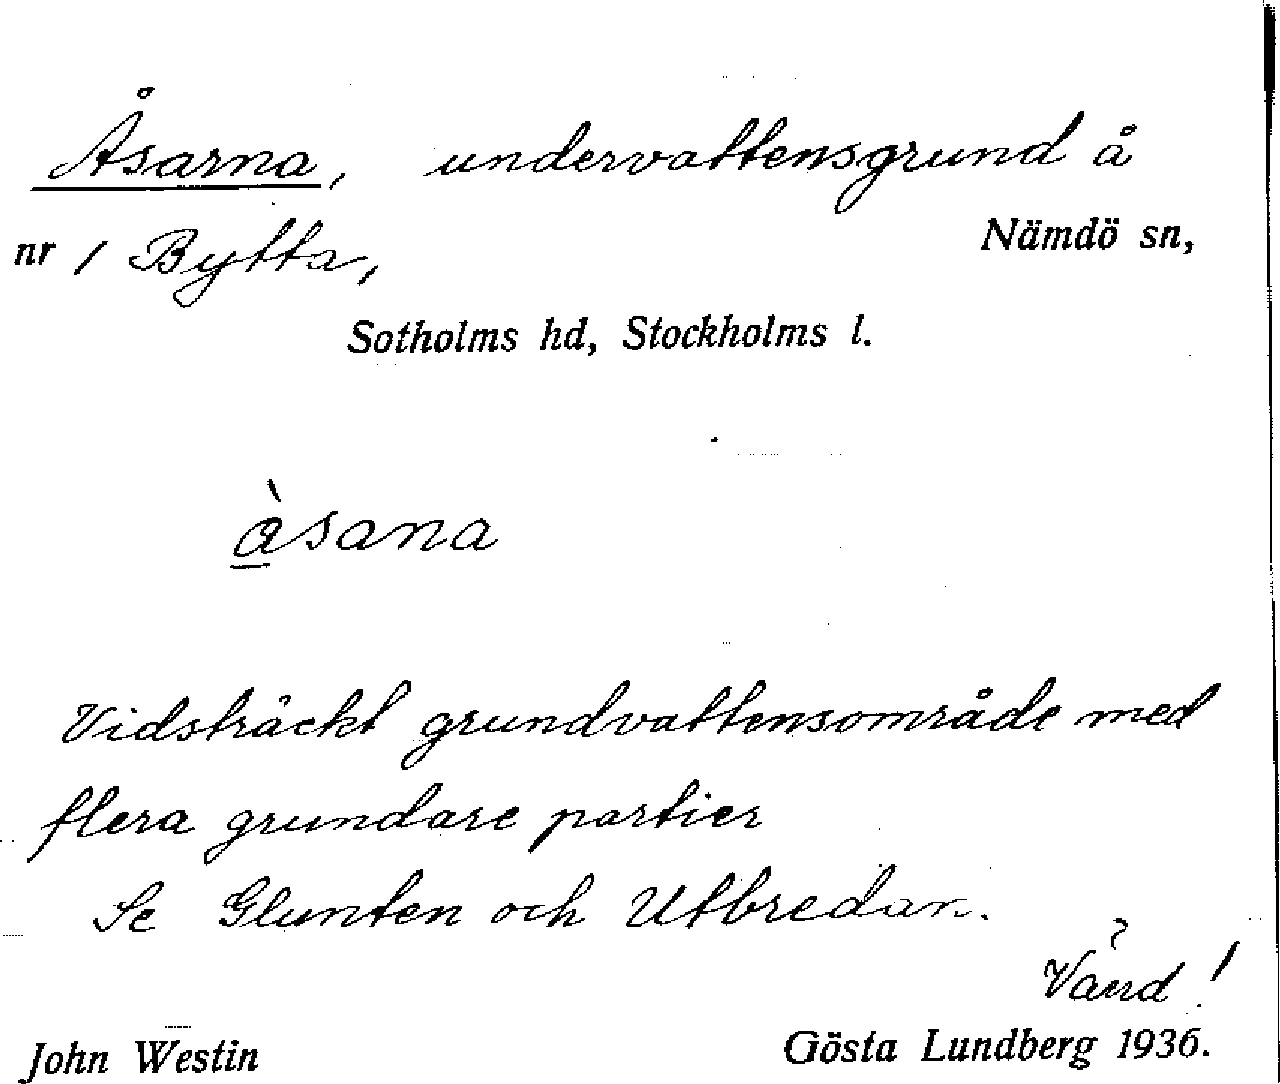 Åsarna, undervattensgrund å
nr 1 Bytta, Nämdö sn,
Sotholms hd, Stockholms l.
àsana
Vidsträckt grundvattensområde med
flera grundare partier
Se Glunten och Utbredan.
Vänd!
John Westin Gösta Lundberg 1936.